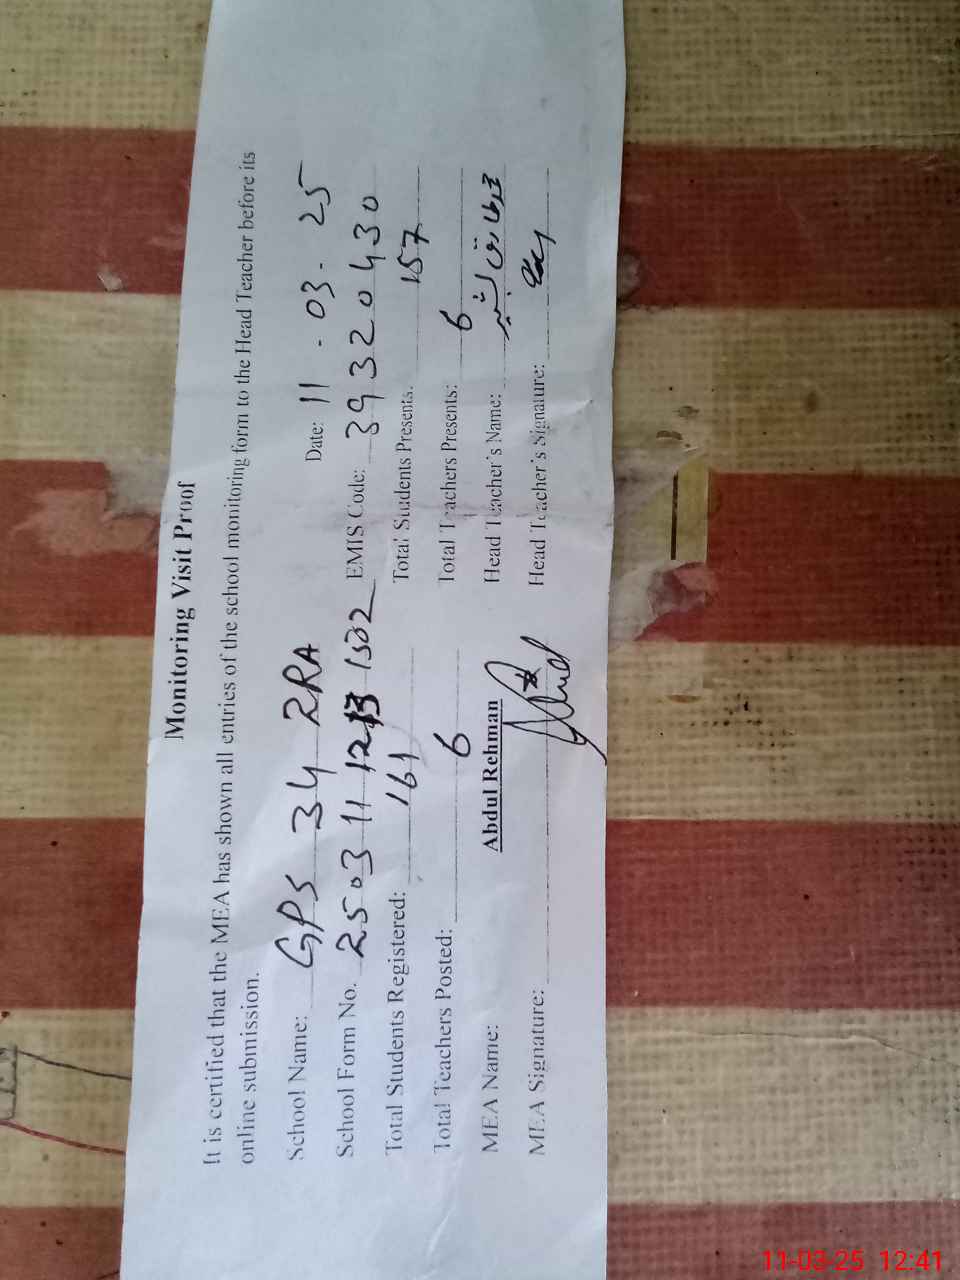 Monitoring Visit Proof
It is certified that the MEA has shown all entries of the school monitoring form to the Head Teacher before its
online submission.
School Name: GPS 34 2RA Date: 11 - 03 - 25
School Form No. 2503 11 1213 1502 EMIS Code: 39320430
Total Students Registered: 161 Total Students Presents: 157
Total Teachers Posted: 6 Total Teachers Presents: 6
MEA Name: Abdul Rehman Head Teacher's Name: محمد طارق بشیر
MEA Signature: Head Teacher's Signature:
11-03-25 12:41